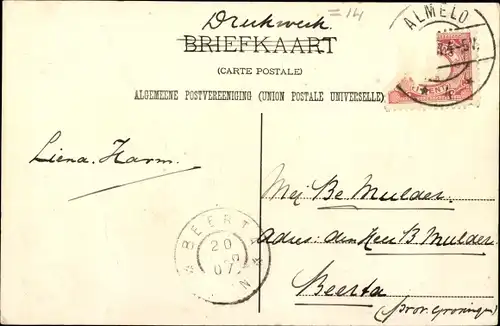 Drukwerk.
=14
BRIEFKAART
(CARTE POSTALE)
ALGEMEENE POSTVEREENIGING (UNION POSTALE UNIVERSELLE)
ALMELO
Liena. Harm.
Mej Be Mulder.
Adres: den Heer B Mulder
Beerta
(prov. Groningen)
BEERTA
20
07